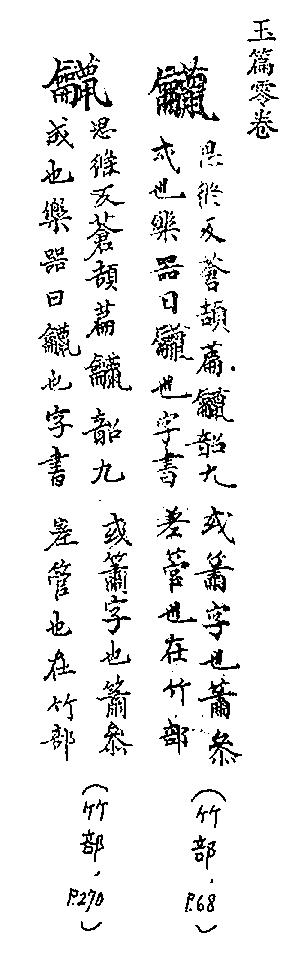 玉篇零卷
思條反蒼頡篇韶九
成也樂器曰也字書
或簫字也簫參
差管也在竹部
(竹部，P.68)
思條反蒼頡篇韶九
成也樂器曰也字書
或簫字也簫參
差管也在竹部
(竹部，P.270)